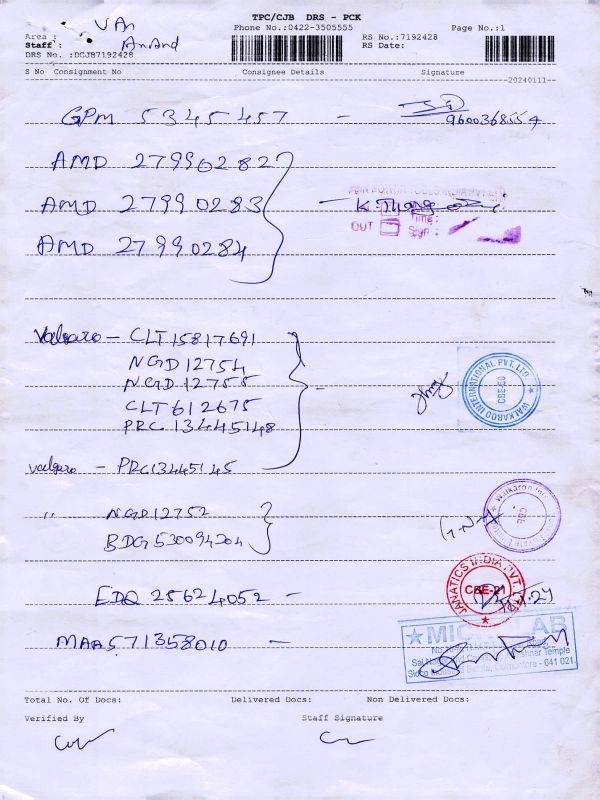 TPC/CJB DRS - PCK
VAN
Phone No.:0422-3505555
Page No.:1
Area :
RS No.:7192428
Staff : Anand
RS Date:
DRS No. :DCJB7192428
S No Consignment No Consignee Details Signature
20240111
GPM 5345457 -
9600368554
AMD 27990282
AMD 27990283
AMD 27990284
OUT Time:
Sign:
Valgaro - CLT 15817691
NGD 12754
NGD 12755
CLT 612675
PRC 13445148
WALKAROO INTERNATIONAL PVT. LTD.
CBE-60
Valgaro - PRC13445145
" NGD 12752
BDG 530094204
G.N.A
CBE
EDQ 25624052 -
JANATICS INDIA PVT. LTD.
CBE-21
MAA571358010 -
Coimbatore - 641 021
Total No. Of Docs: Delivered Docs: Non Delivered Docs:
Verified By Staff Signature